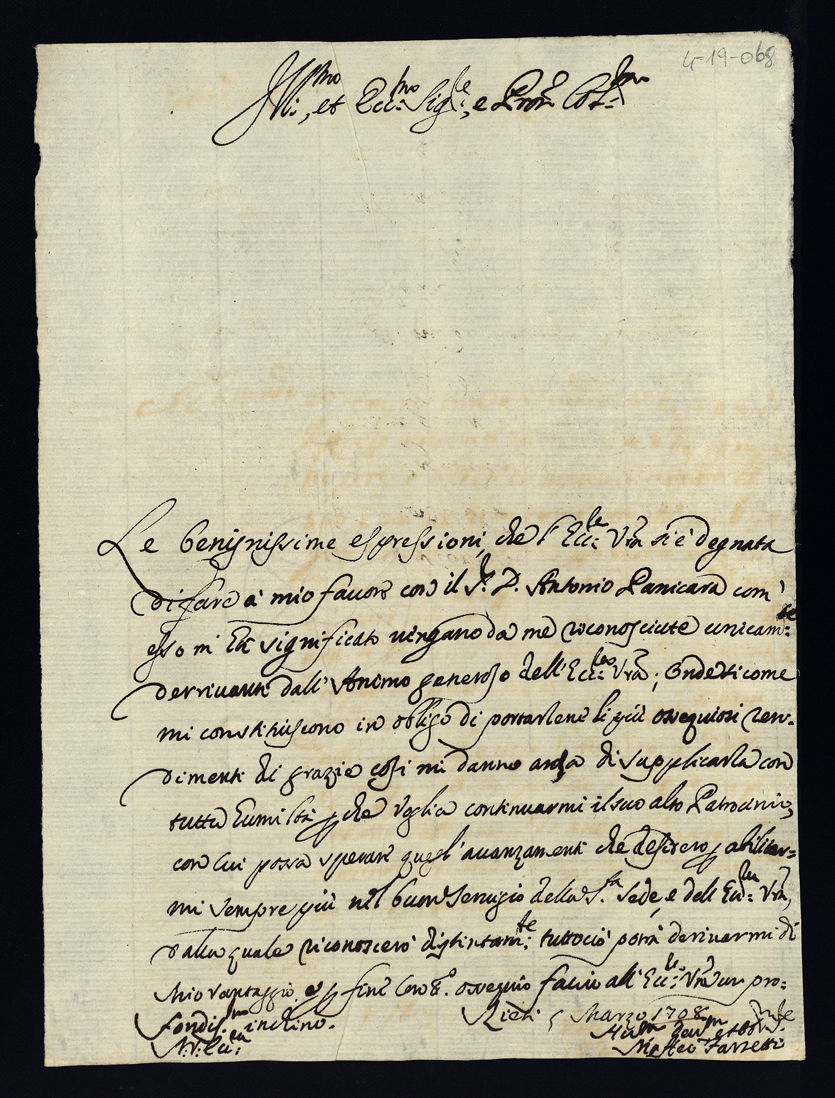 4-19-068
Ill:mo, et Ecc:mo Sig:re, e Pron Col:mo
Le benignissime espressioni, che l'Ecc:za Vra si è degnata
di fare à mio favore con il S.r D. Antonio Panicara com'
esso mi hà significato vengano da me riconosciute unicam:te
derrivanti dall'Animo generoso dell'Ecc:za Vra; Onde si come
mi constituiscono in obligo di portarlene li più ossequiosi ren-
dimenti di grazie cosi mi danno ansa di supplicarla con
tutta humiltà, che voglia continuarmi il suo alto Patrocinio,
con cui possa sperare quegl'avanzamenti che desidero p abilitar=
mi sempre più nel buon Servigio della S.ta Sede, e dell'Ecc:za Vra,
dalla quale riconoscerò distintam:te tuttociò potrà derivarmi di
mio vantaggio, e p fine con ossequio faccio all'Ecc:za Vra un pro=
fondis:mo inchino.
Rieti 5 Marzo 1708
V. Ecc:za
Hum Dev:m et Obl
Matteo Farsetti